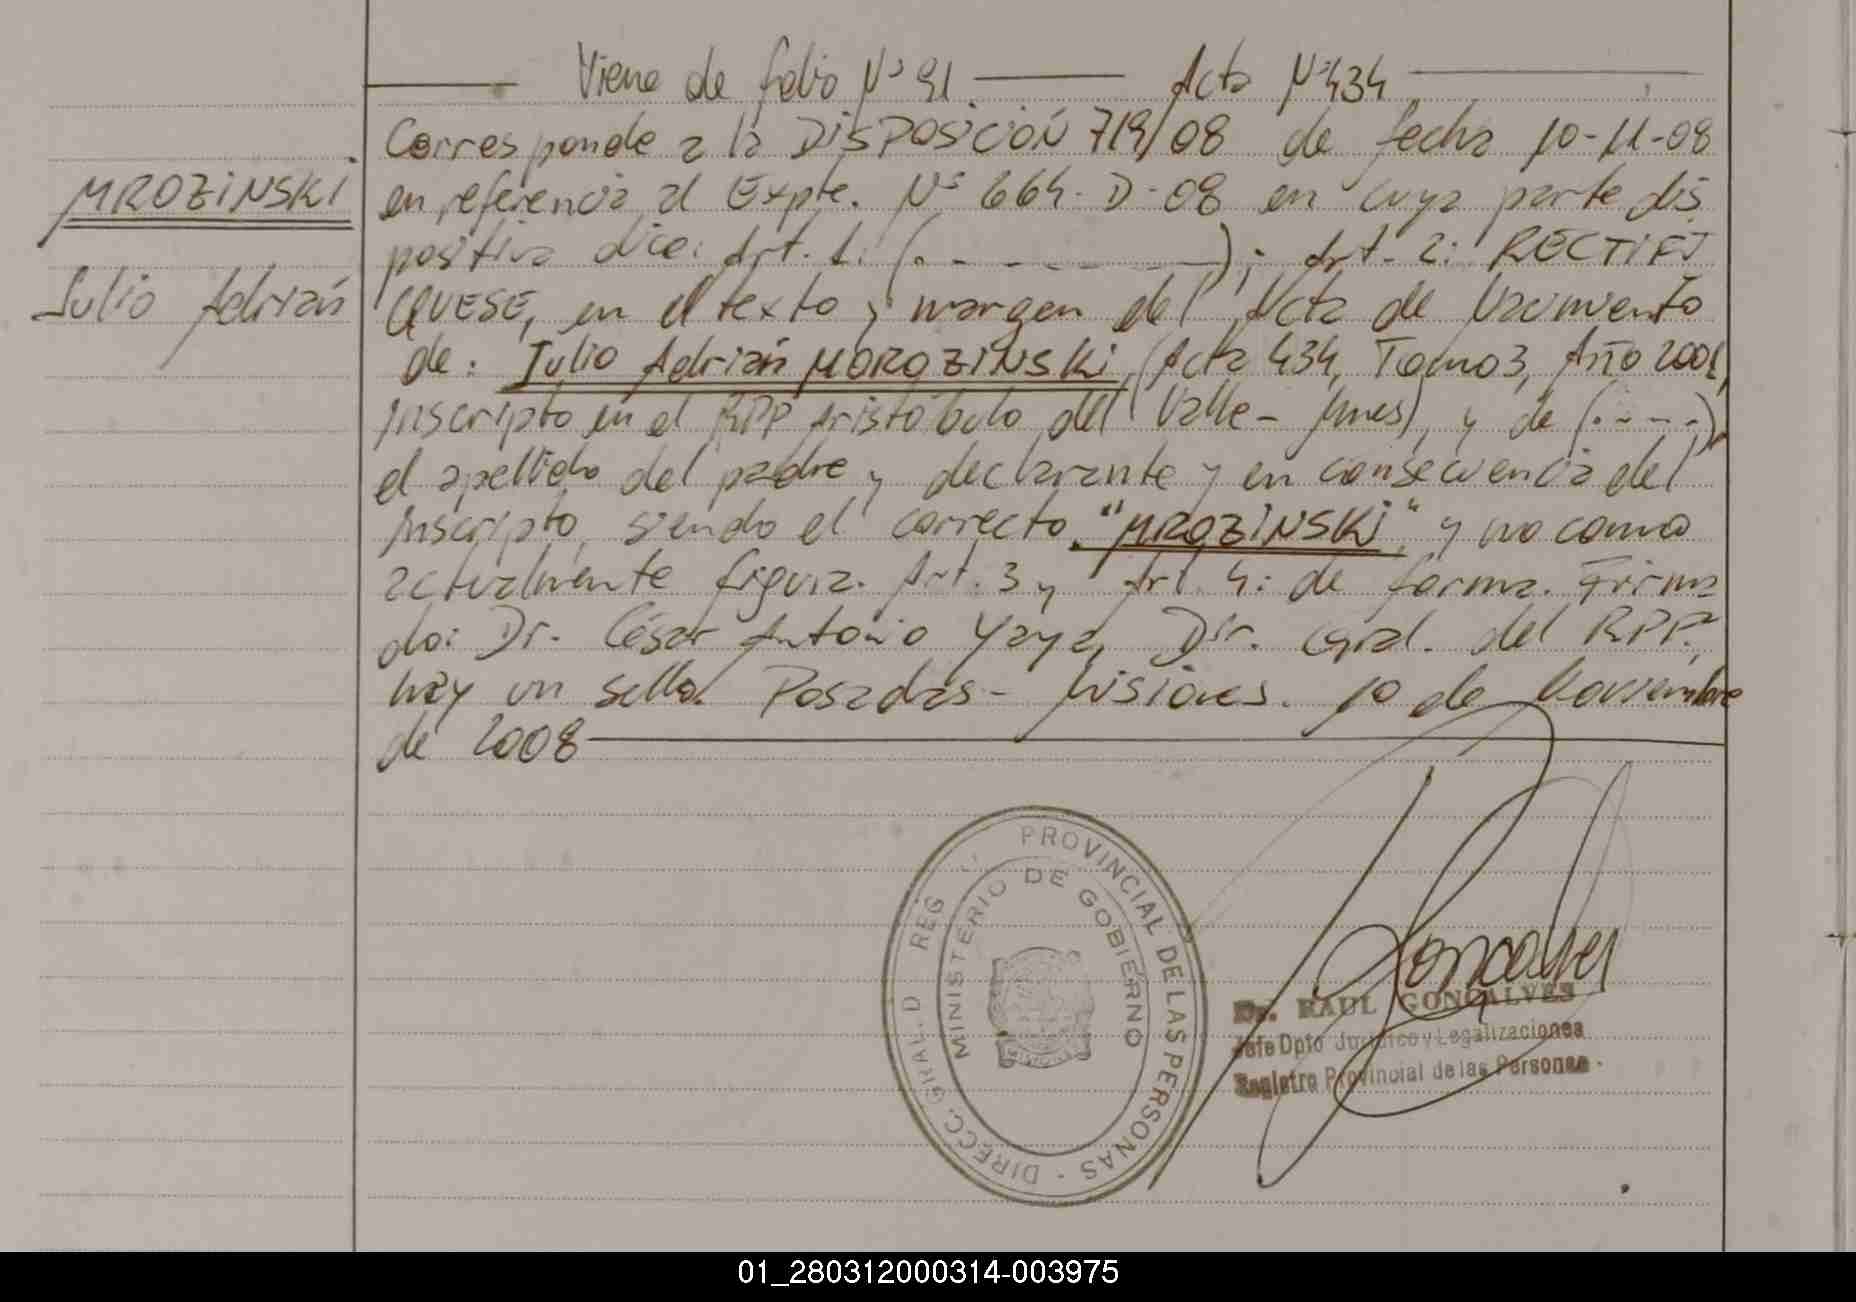 Viene de folio Nº 91 Acta Nº 434
Corresponde a la DISPOSICIÓN 719/08 de fecha 10-11-08
MROZINSKI
en referencia al Expte. Nº 664-D-08 en cuya parte dis
positiva dice: Art. 1: (. - - - - -); Art. 2: RECTIFI
Julio Adrián
QUESE, en el texto y margen del Acta de Nacimiento
de: Julio Adrián MOROZINSKI (Acta 434, Tomo 3, Año 2001,
inscripto en el RPP Aristóbulo del Valle - Mnes), y de (. - - - -),
el apellido del padre y declarante y en consecuencia del
inscripto, siendo el correcto "MROZINSKI", y no como
actualmente figura. Art. 3 y Art. 4: de forma. Firma
do: Dr. César Antonio Yaya, Dir. Gral. del RPP.,
hay un sello. Posadas - Misiones. 10 de Noviembre
de 2008
DIRECC. GRAL. D REG PROVINCIAL DE LAS PERSONAS -
MINISTERIO DE GOBIERNO
MISIONES
Goncalves
Dr. RAUL GONÇALVES
Jefe Dpto Jurídico y Legalizaciones
Registro Provincial de las Personas
01_280312000314-003975